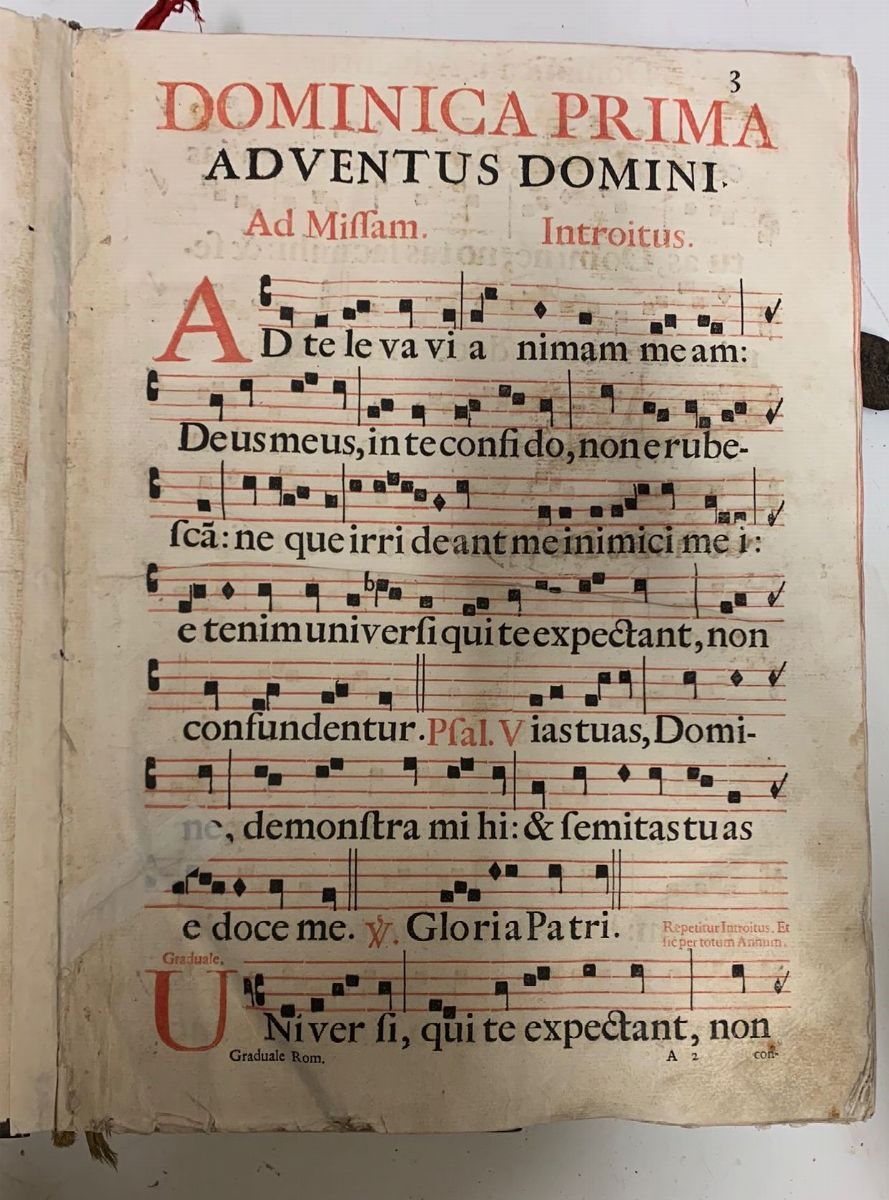 3
DOMINICA PRIMA
ADVENTUS DOMINI.
Ad Miſſam. Introitus.
AD te le va vi a nimam me am:
De us meus, in te confi do, non e rube-
ſcã: ne que irri de ant me inimici me i:
e tenim univerſi qui te expectant, non
confundentur. Pſal. V ias tuas, Domi-
ne, demonſtra mi hi: & ſemitas tu as
e doce me. ℣. Gloria Patri. Repetitur Introitus. Et
ſic per totum Annum.
Graduale.
UNiver ſi, qui te expectant, non
Graduale Rom. A 2 con-